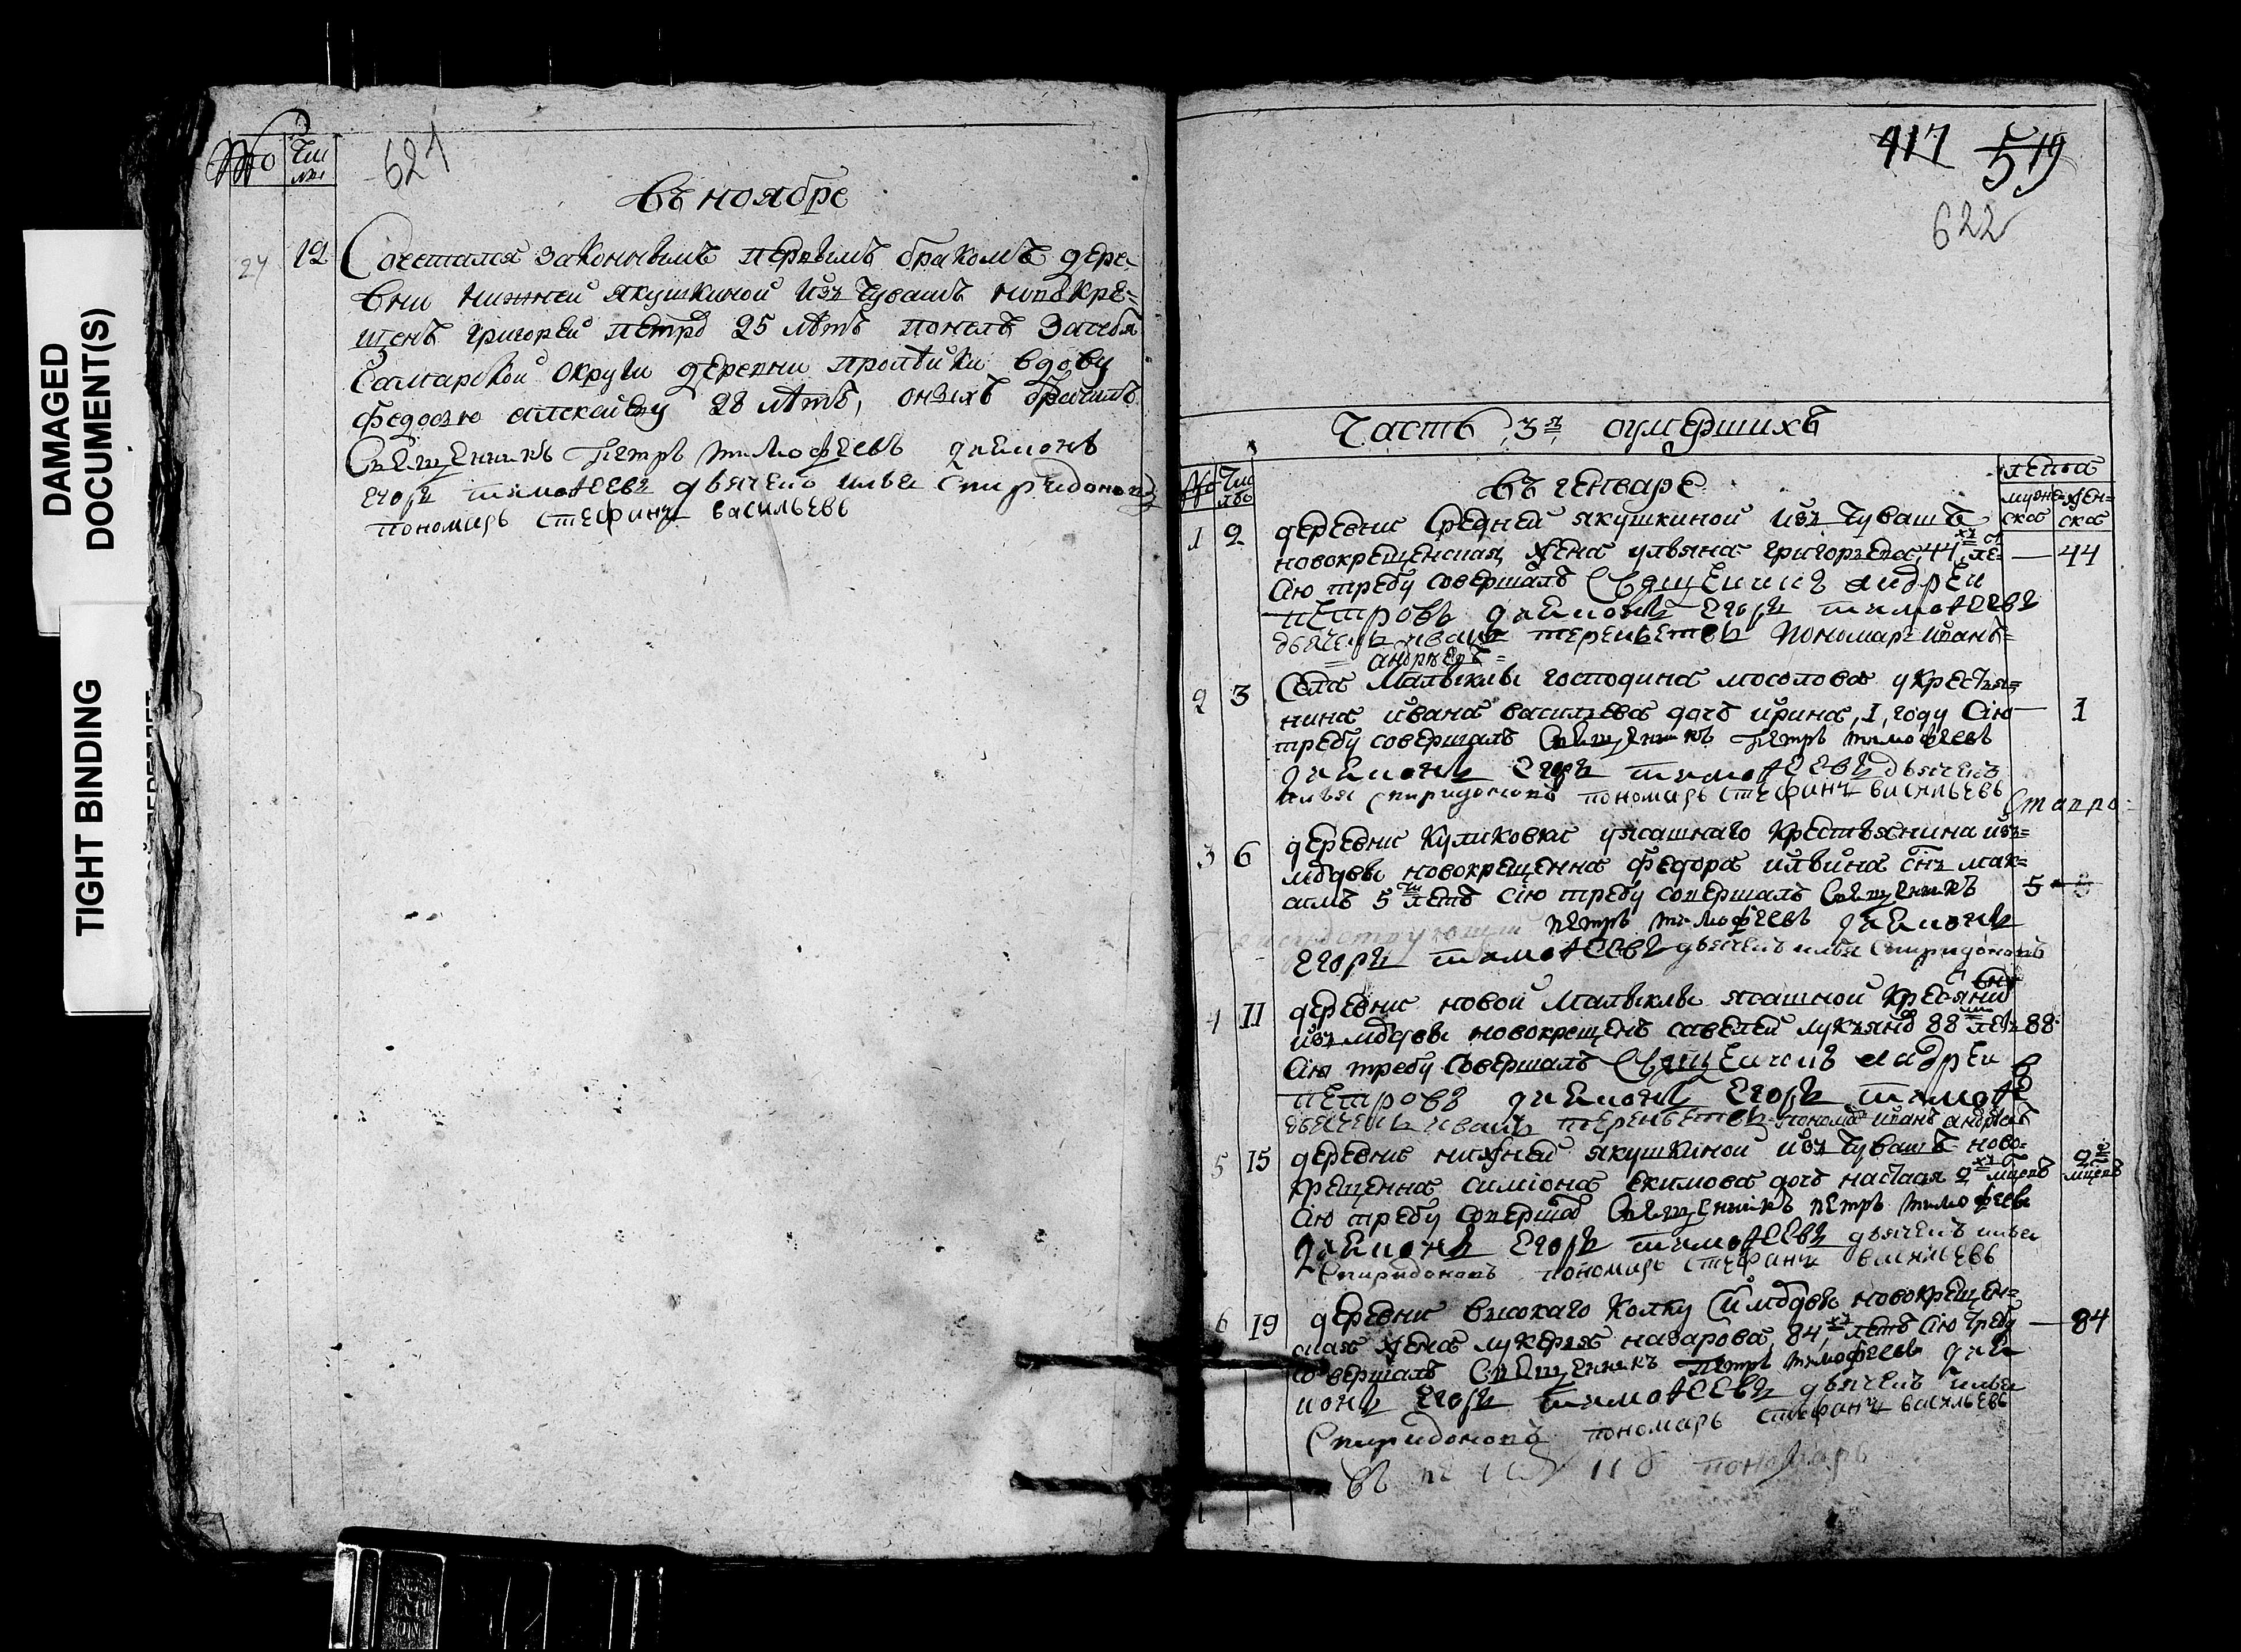 DAMAGED
DOCUMENT(S)
TIGHT BINDING
№ Чи
сло
621
Въ ноябре
24 12 Сочетался законнымъ первымъ бракомъ дере
вни нижней якушкиной изъ чувашъ новокре=
щенъ григореи петро 25 летъ понелъ засебя
Самарской округи деревни вдову
федосью алексаеву 28 летъ, онэыхъ
Священникъ Петръ тимофеевъ диаконъ
егоръ тимоѳеевъ дьячекъ илья Спиридоновъ
пономаръ стефанъ васильевъ
417 519
622
Часть, 3я, оумершихъ
№ Чи
сло
въ генваре
лета
мужес
ска
жен=
ска
1 2 деревни Средней якушкиной изъ чувашъ
новокрещенная жена ульяна григорьева, 44хъ ле — 44
сию требу совершалъ Священникъ андреи
петровъ диаконъ егоръ тимоѳеевъ
дьячекъ иванъ терентьевъ пономаръ иванъ=
= андреевъ =
2 3 Села Малыклы господина мосолова у крестья=
нина ивана васильева дочь ирина, 1, году сию — 1
требу совершалъ Священникъ Петръ тимофеевъ
диаконъ егоръ тимоѳеевъ дьячекъ
илья спиридоновъ пономаръ стефанъ васильевъ
3 6 деревни Куликовки уясашнаго крестьянина изъ=
мордвы новокрещенна федора ильина снъ мак=
симъ 5ти летъ сию требу совершалъ Священникъ 5 - 5
петръ тимофеевъ диаконъ
егоръ тимоѳеевъ дьячекъ илья спиридоновъ
4 11 деревни новой Малыклы ясашной кресянин
изъ мордвы новокрещенъ савелей лукьяно 88ми ле 88
сию требу совершалъ Священникъ андреи
петровъ диаконъ егоръ тимоѳеев
дьячекъ иванъ терентьевъ пономаръ иванъ андреевъ
5 15 деревни нижней якушкиной изъ чувашъ ново=
крещенна симиона екимова дочь настася 2хъ месецъ 2х месецъ
сию требу соверша Священникъ петръ тимофеевъ
диаконъ егоръ тимоѳеевъ дьячекъ илья
спиридоновъ пономаръ стефанъ васильевъ
6 19 деревни высокаго колку новокрещен=
ная жена лукерья назарова, 84, хъ летъ сию требу — 84
совершалъ Священникъ петръ тимофеевъ диа
конъ егоръ тимоѳеевъ дьячекъ илья
Спиридоновъ пономаръ стефанъ васильевъ
пономаръ